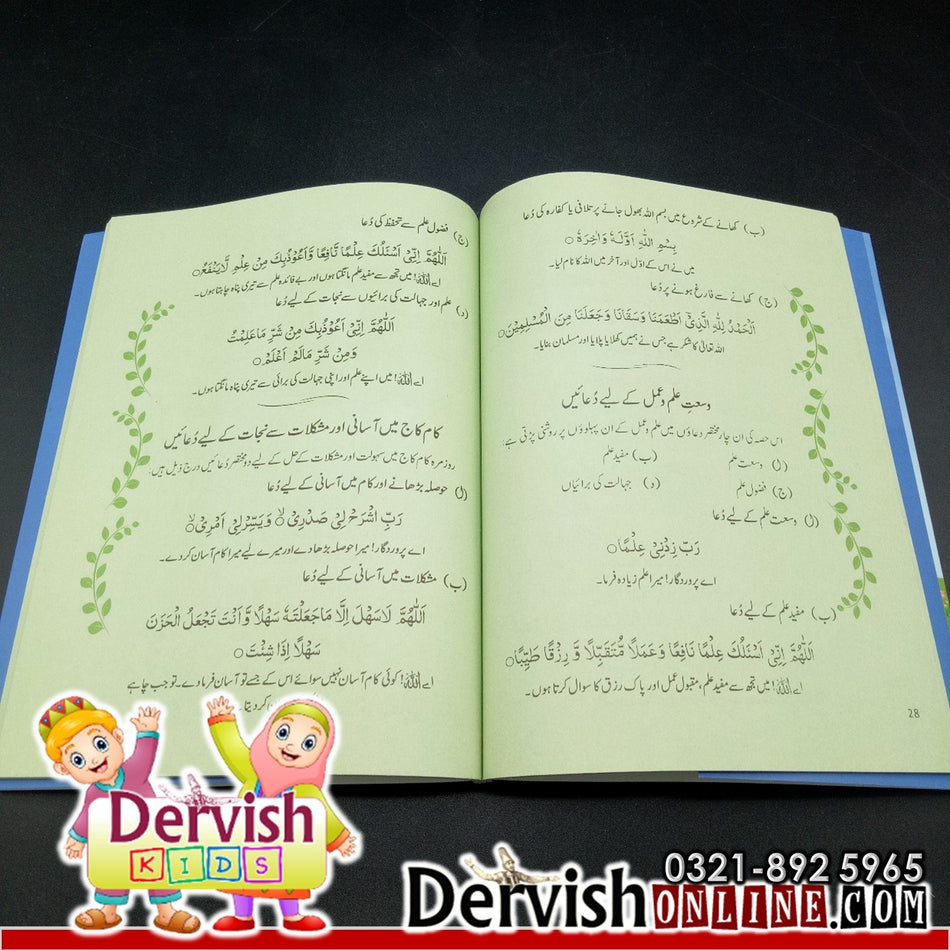 (ب) کھانے کے شروع میں بسم اللہ بھول جانے پر تلافی یا کفارہ کی دُعا
بِسْمِ اللّٰهِ اَوَّلَهٗ وَاٰخِرَهٗ ○
میں نے اس کے اوّل اور آخر میں اللہ کا نام لیا۔
(ج) کھانے سے فارغ ہونے پر دُعا
اَلْحَمْدُ لِلّٰهِ الَّذِیْٓ اَطْعَمَنَا وَسَقَانَا وَجَعَلَنَا مِنَ الْمُسْلِمِیْنَ ○
اللہ تعالیٰ کا شکر ہے جس نے ہمیں کھلایا پلایا اور مسلمان بنایا۔
وسعتِ علم و عمل کے لیے دُعائیں
اس حصہ کی ان چار مختصر دعاؤں میں علم و عمل کے ان پہلوؤں پر روشنی پڑتی ہے:
(ا) وسعت علم (ب) مفید علم
(ج) فضول علم (د) جہالت کی برائیاں
(ا) وسعت علم کے لیے دُعا
رَبِّ زِدْنِیْ عِلْمًا ○
اے پروردگار! میرا علم زیادہ فرما۔
(ب) مفید علم کے لیے دُعا
اَللّٰهُمَّ اِنِّیْ اَسْئَلُكَ عِلْمًا نَافِعًا وَعَمَلًا مُّتَقَبَّلًا وَّ رِزْقًا طَیِّبًا ○
اے اللہ! میں تجھ سے مفید علم، مقبول عمل اور پاک رزق کا سوال کرتا ہوں۔
28
(ج) فضول علم سے تحفظ کی دُعا
اَللّٰهُمَّ اِنِّیْ اَسْئَلُكَ عِلْمًا نَّافِعًا وَّاَعُوْذُبِكَ مِنْ عِلْمٍ لَّایَنْفَعُ ○
اے اللہ! میں تجھ سے مفید علم مانگتا ہوں اور بے فائدہ علم سے تیری پناہ چاہتا ہوں۔
(د) علم اور جہالت کی برائیوں سے نجات کے لیے دُعا
اَللّٰهُمَّ اِنِّیْ اَعُوْذُبِكَ مِنْ شَرِّ مَاعَلِمْتُ
وَمِنْ شَرِّ مَالَمْ اَعْلَمْ ○
اے اللہ! میں اپنے علم اور اپنی جہالت کی برائی سے تیری پناہ مانگتا ہوں۔
کام کاج میں آسانی اور مشکلات سے نجات کے لیے دُعائیں
روزمرہ کام کاج میں سہولت اور مشکلات کے حل کے لیے دو مختصر دُعائیں درج ذیل ہیں:
(ا) حوصلہ بڑھانے اور کام میں آسانی کے لیے دُعا
رَبِّ اشْرَحْ لِیْ صَدْرِیْ ○ وَیَسِّرْلِیْٓ اَمْرِیْ ○
اے پروردگار! میرا حوصلہ بڑھا دے اور میرے لیے میرا کام آسان کر دے۔
(ب) مشکلات میں آسانی کے لیے دُعا
اَللّٰهُمَّ لَاسَهْلَ اِلَّا مَاجَعَلْتَهٗ سَهْلًا وَّاَنْتَ تَجْعَلُ الْحَزَنَ
سَهْلًا اِذَا شِئْتَ ○
اے اللہ! کوئی کام آسان نہیں سوائے اس کے جسے تو آسان فرما دے۔ تو جب چاہے
کر دیتا۔
Dervish
KIDS
0321-892 5965
DervishONLINE.COM